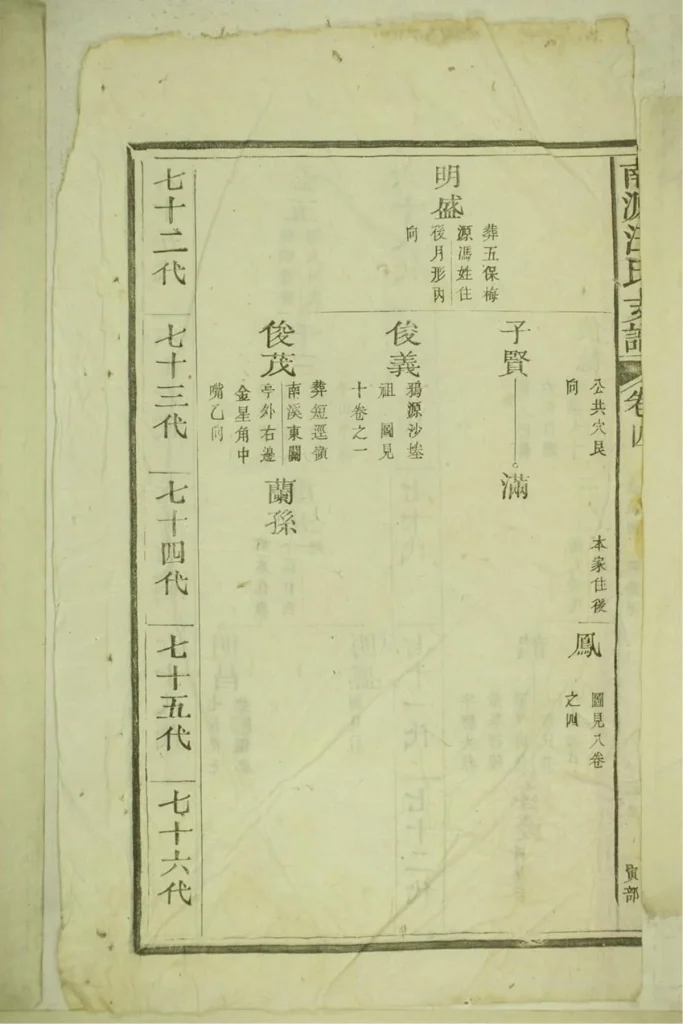 南源汪氏支譜
卷四
寅部
公共穴艮
向
本家住後
鳳
圖見八卷
之四
子賢
滿
明盛
葬五保梅
源馮姓住
後月形丙
向
俊義
鴉源沙墶
祖 圖見
十卷之一
俊茂
葬短逕嶺
南溪東關
亭外右邊
金星角中
嘴乙向
蘭孫
七十二代
七十三代
七十四代
七十五代
七十六代